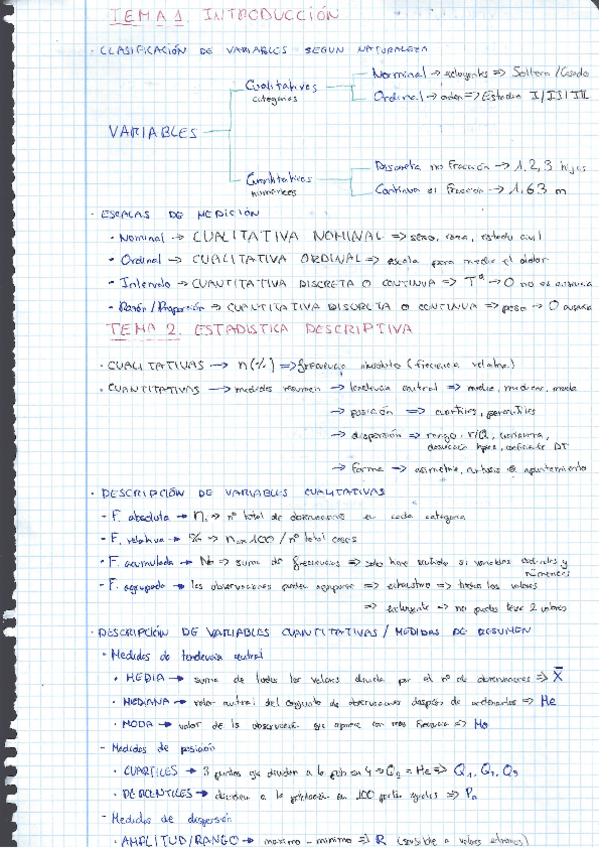 TEMA 1. INTRODUCCIÓN
· CLASIFICACIÓN DE VARIABLES SEGUN NATURALEZA
VARIABLES
Cualitatives categorias
Nominal → excluyentes => Soltero/Casado
Ordinal → orden => Estadio I/II/III
Cuantitatives numéricas
Discreta no fracción → 1, 2, 3 hijos
Continua si fracción → 1,63 m
· ESCALAS DE MEDICIÓN
· Nominal → CUALITATIVA NOMINAL => sexo, raza, estado civil
· Ordinal → CUALITATIVA ORDINAL => escala para medir el dolor
· Intervalo → CUANTITATIVA DISCRETA O CONTINUA => Tª → 0 no es ausencia
· Razón/Proporción → CUANTITATIVA DISCRETA O CONTINUA => peso → 0 ausencia
TEMA 2. ESTADISTICA DESCRIPTIVA
· CUALITATIVAS → n(%) => frecuencia absoluta (frecuencia relativa)
· CUANTITATIVAS → medidas resumen → tendencia central => media, mediana, moda
→ posición => cuartiles, percentiles
→ dispersión => rango, RIQ, varianza, desviación típica, coeficiente DT
→ forma => asimetría, curtosis o apuntamiento
· DESCRIPCIÓN DE VARIABLES CUALITATIVAS
- F. absoluta → n. => nº total de observaciones en cada categoria
- F. relativa → % => n x 100 / nº total casos
- F. acumulada → N => suma de frecuencias => solo tiene sentido si variables ordinales y numéricas
- F. agrupada → les observaciones pueden agruparse => exhaustivo => todos los valores
=> excluyente => no puedes tener 2 valores
· DESCRIPCIÓN DE VARIABLES CUANTITATIVAS / MEDIDAS DE RESUMEN
- Medidas de tendencia central
· MEDIA → suma de todos los valores dividida por el nº de observaciones => X̄
· MEDIANA → valor central del conjunto de observaciones después de ordenarlas => Me
· MODA → valor de la observación que aparece con más frecuencia => Mo
- Medidas de posición
· CUARTILES → 3 puntos que dividen a la población en 4 → Q2 = Me => Q1, Q2, Q3
· PERCENTILES → dividen a la población en 100 partes iguales => Pn
- Medidas de dispersión
· AMPLITUD/RANGO → maximo - minimo => R (sensible a valores extremos)